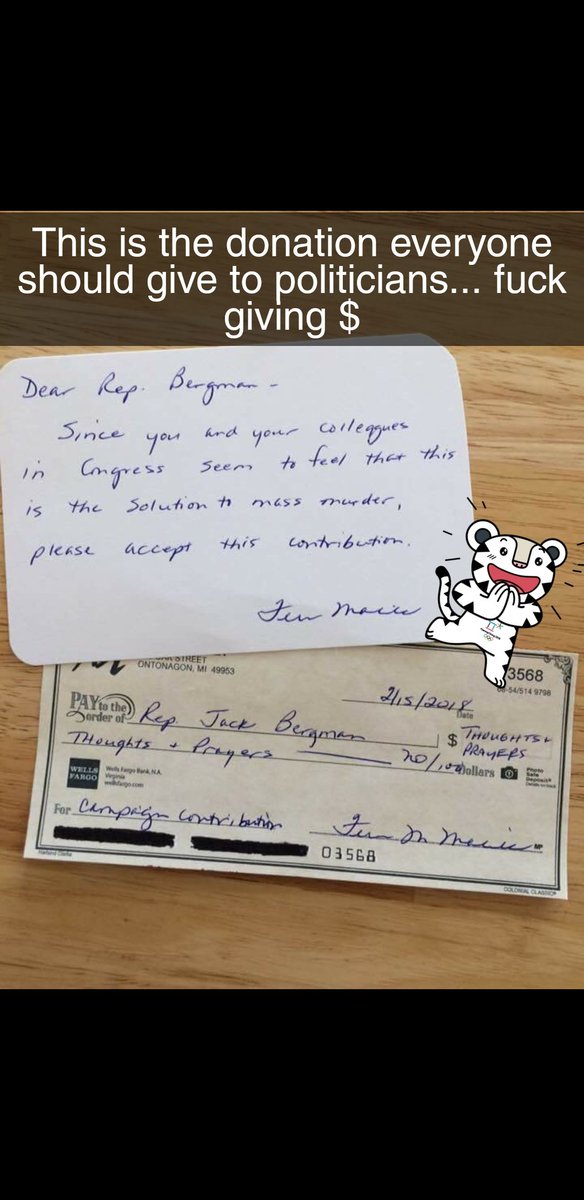 This is the donation everyone
should give to politicians... fuck
giving $
Dear Rep. Bergman -
Since you and your colleagues
in Congress seem to feel that this
is the solution to mass murder,
please accept this contribution.
STREET
ONTONAGON, MI 49953
3568
54/514 9798
2/15/2018
Date
PAY to the
order of Rep. Jack Bergman $ THOUGHTS +
PRAYERS
Thoughts + Prayers no/100 Dollars
Photo
Safe
Deposit®
WELLS
FARGO
Wells Fargo Bank, N.A.
Virginia
wellsfargo.com
For Campaign Contribution
MP
03568
Harland Clarke
COLONIAL CLASSIC®